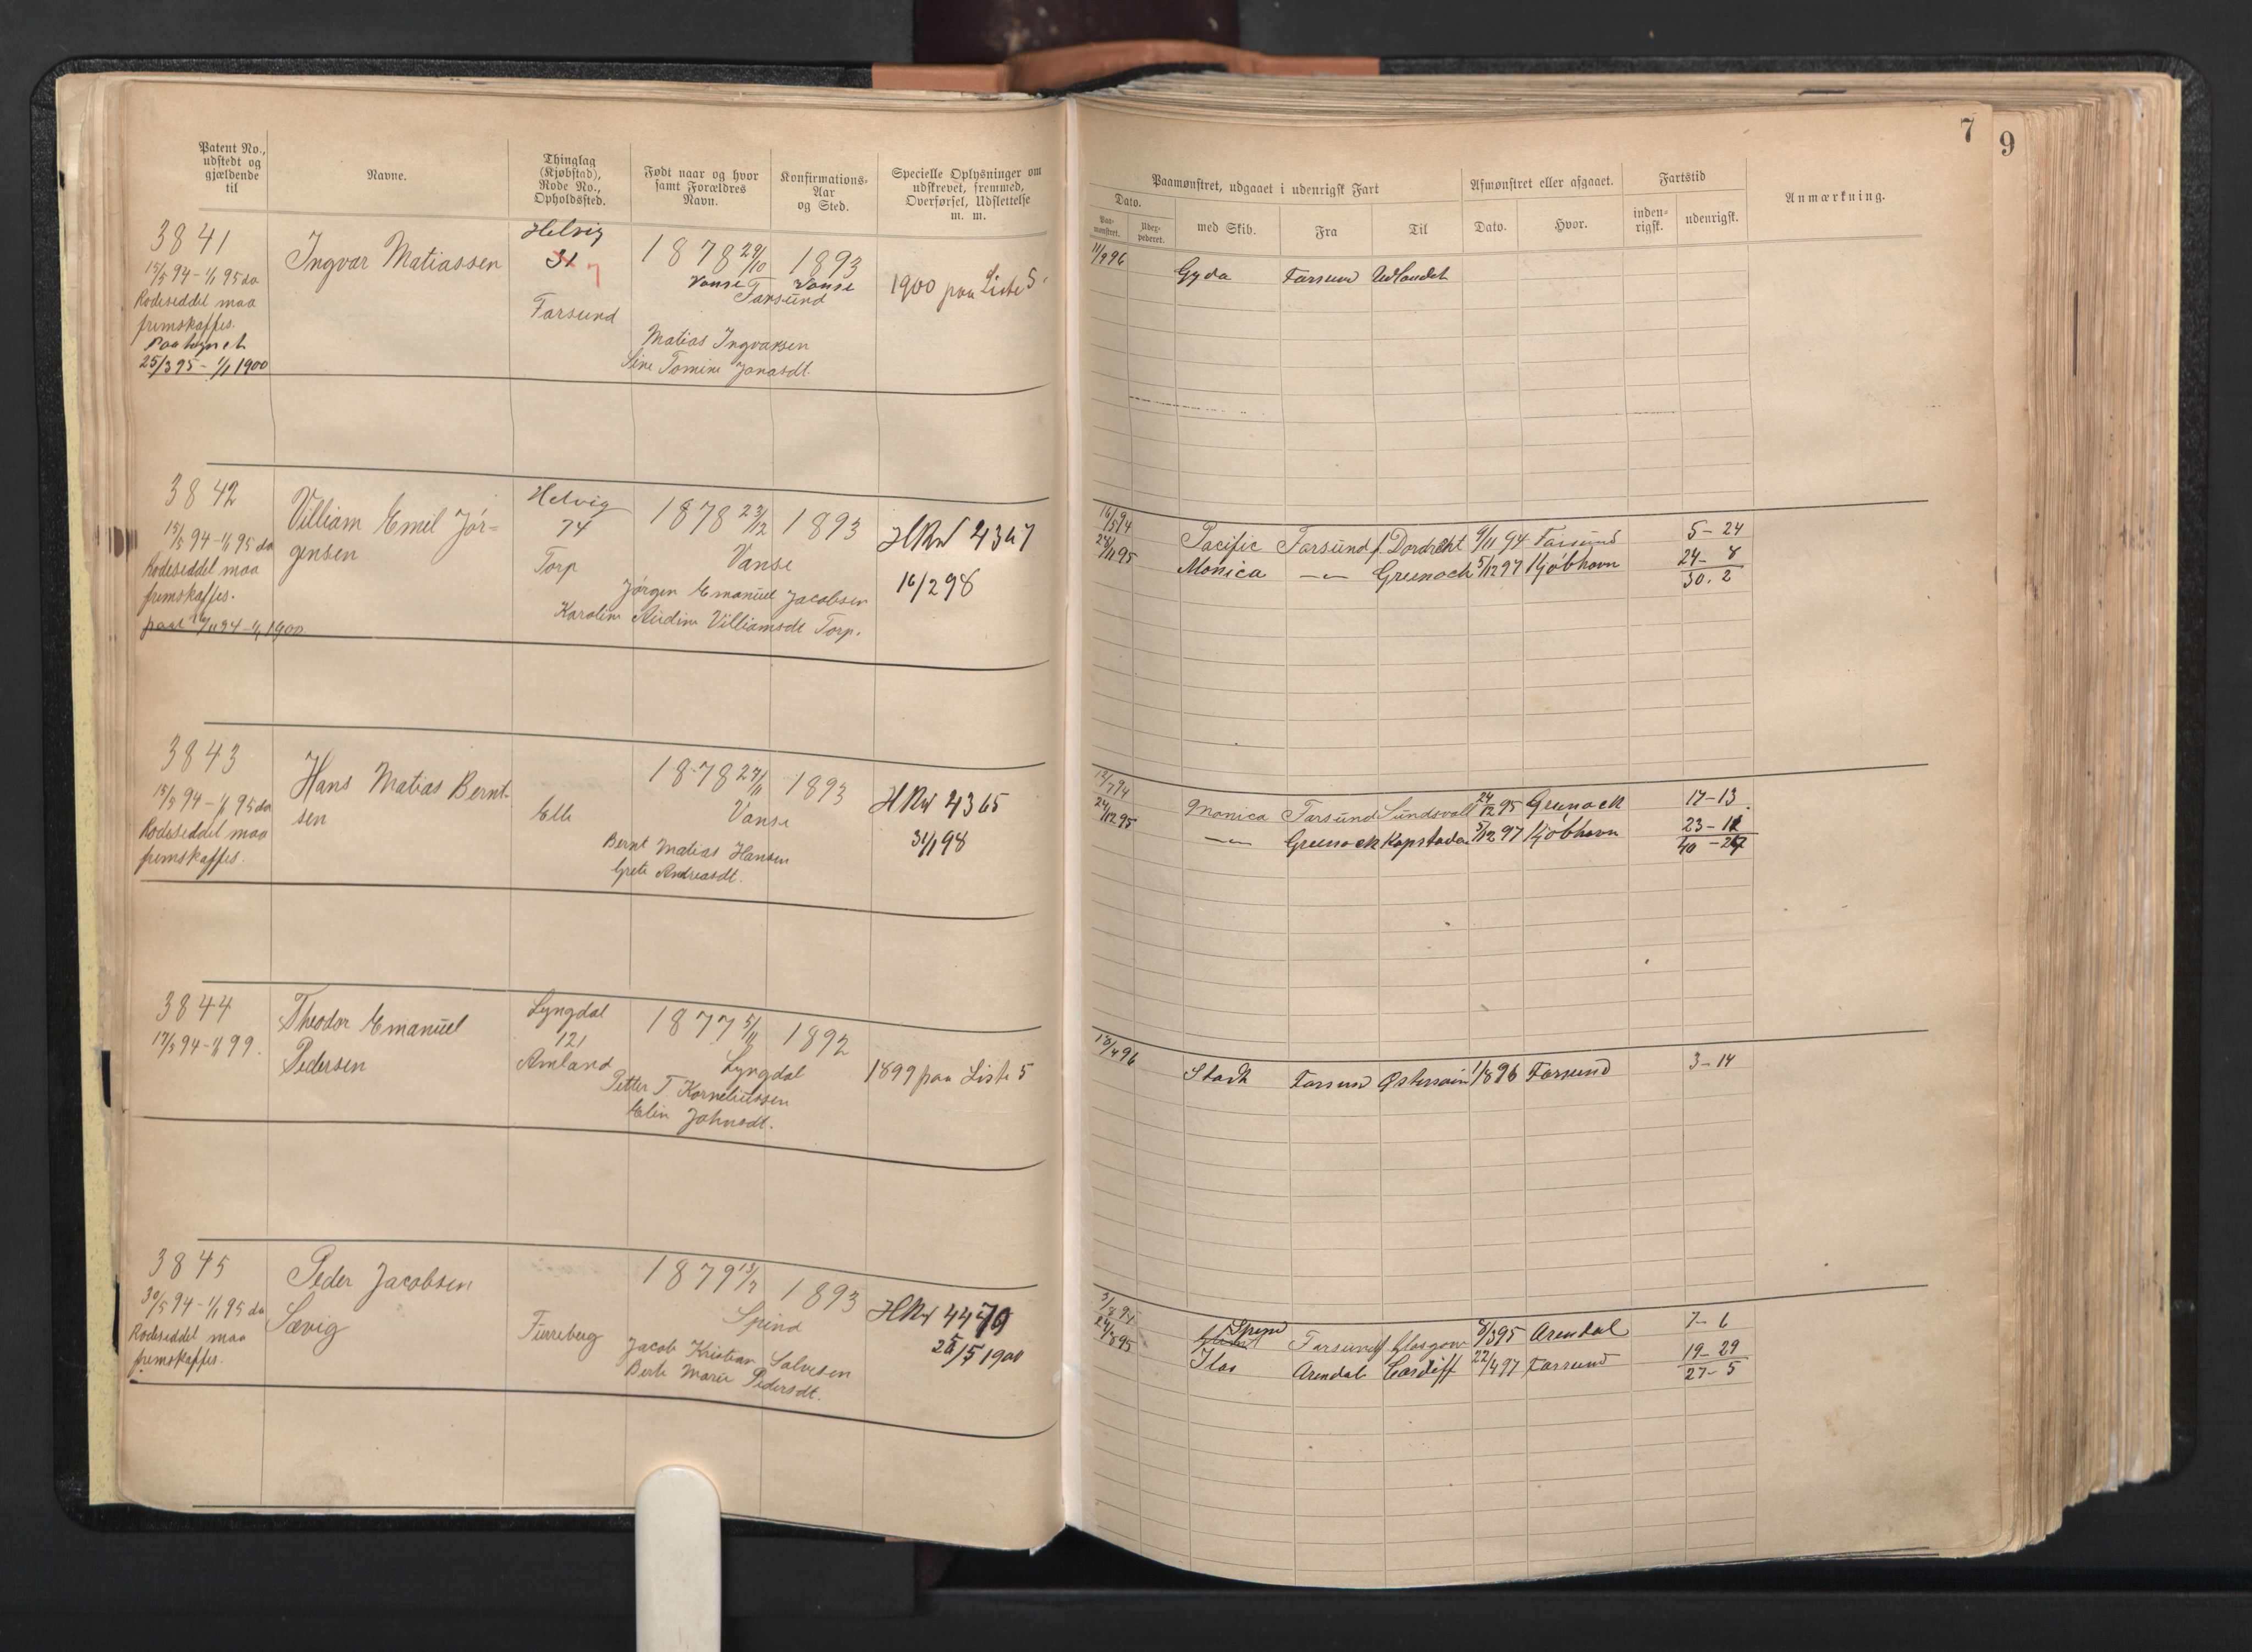 7
9
Patent No., udstedt og gjældende til
Navne.
Thinglag (Kjøbstad), Rode No., Opholdssted.
Født naar og hvor samt Forældres Navn.
Konfirmations-Aar og Sted.
Specielle Oplysninger om udskrevet, fremmed, Overførsel, Udslettelse m. m.
Paamønstret, udgaaet i udenrigsk Fart
Dato.
Paa-mønstret.
med Skib.
Fra
Til
Afmønstret eller afgaaet.
Dato.
Hvor.
Fartstid
inden-rigsk.
udenrigsk.
Anmærkning.
3841
15/5 94 - 1/1 95 da
Rodeseddel maa
fremskaffes.
Paategnet
25/3 95 - 1/1 1900
Ingvar Matiassen
Helvig
31
Farsund
1878 29/10
Vanse
Farsund
Matias Ingvarsen
Sine Tomine Jonasdt.
1893
Vanse
1900 paa Liste 5
11/9 96
Gyda
Farsund
Udlandet
3842
15/5 94 - 1/1 95 da
Rodeseddel maa
fremskaffes.
Villiam Emil Jør=
gensen
Helvig
74
Torp
1878 23/12
Vanse
Jørgen Emanuel Jacobsen
Karoline Audine Villiamsdt Torp.
1893
HRul 4367
16/2 98
16/5 94 Pacific Farsund f. Dordrecht 9/11 94 Farsund 5 - 24
28/11 95 Monica -"- Greenock 5/12 97 Kjøbhavn 24 - 8
30. 2
3843
15/5 94 - 1/1 95 da
Rodeseddel maa
fremskaffes.
Hans Matias Bernt-
sen
Elle
1878 27/11
Vanse
Bernt Matias Hansen
Grete Andreasdt.
1893
HRul 4365
31/1 98
12/7 94 Monica Farsund Sundsvall 24/12 95 Greenock 17-13
24/12 95 -"- Greenock Kapstaden 5/12 97 Kjøbhavn
3844
17/5 94 - 1/1 99.
Theodor Emanuel
Pedersen
Lyngdal
121
Amland
1877 5/11
Lyngdal
Petter T. Korneliussen
Elin Johnsdt.
1892
1899 paa Liste 5
13/4 96 Farsund 1/8 96 Farsund 3 - 14
3845
30/5 94 - 1/1 95 da
Rodeseddel maa
fremskaffes.
Peder Jacobsen
Sævig
1879 13/2
Spind
Jacob Kristian Salvesen
Berte Marie Pedersdt.
1893
HRul 4470
25/5 1900
Spind Farsund f Glasgow 8/3 95 Arendal 7 - 6
24/8 95 Arendal Cardiff 22/4 97 Farsund 19 - 29
27 - 5